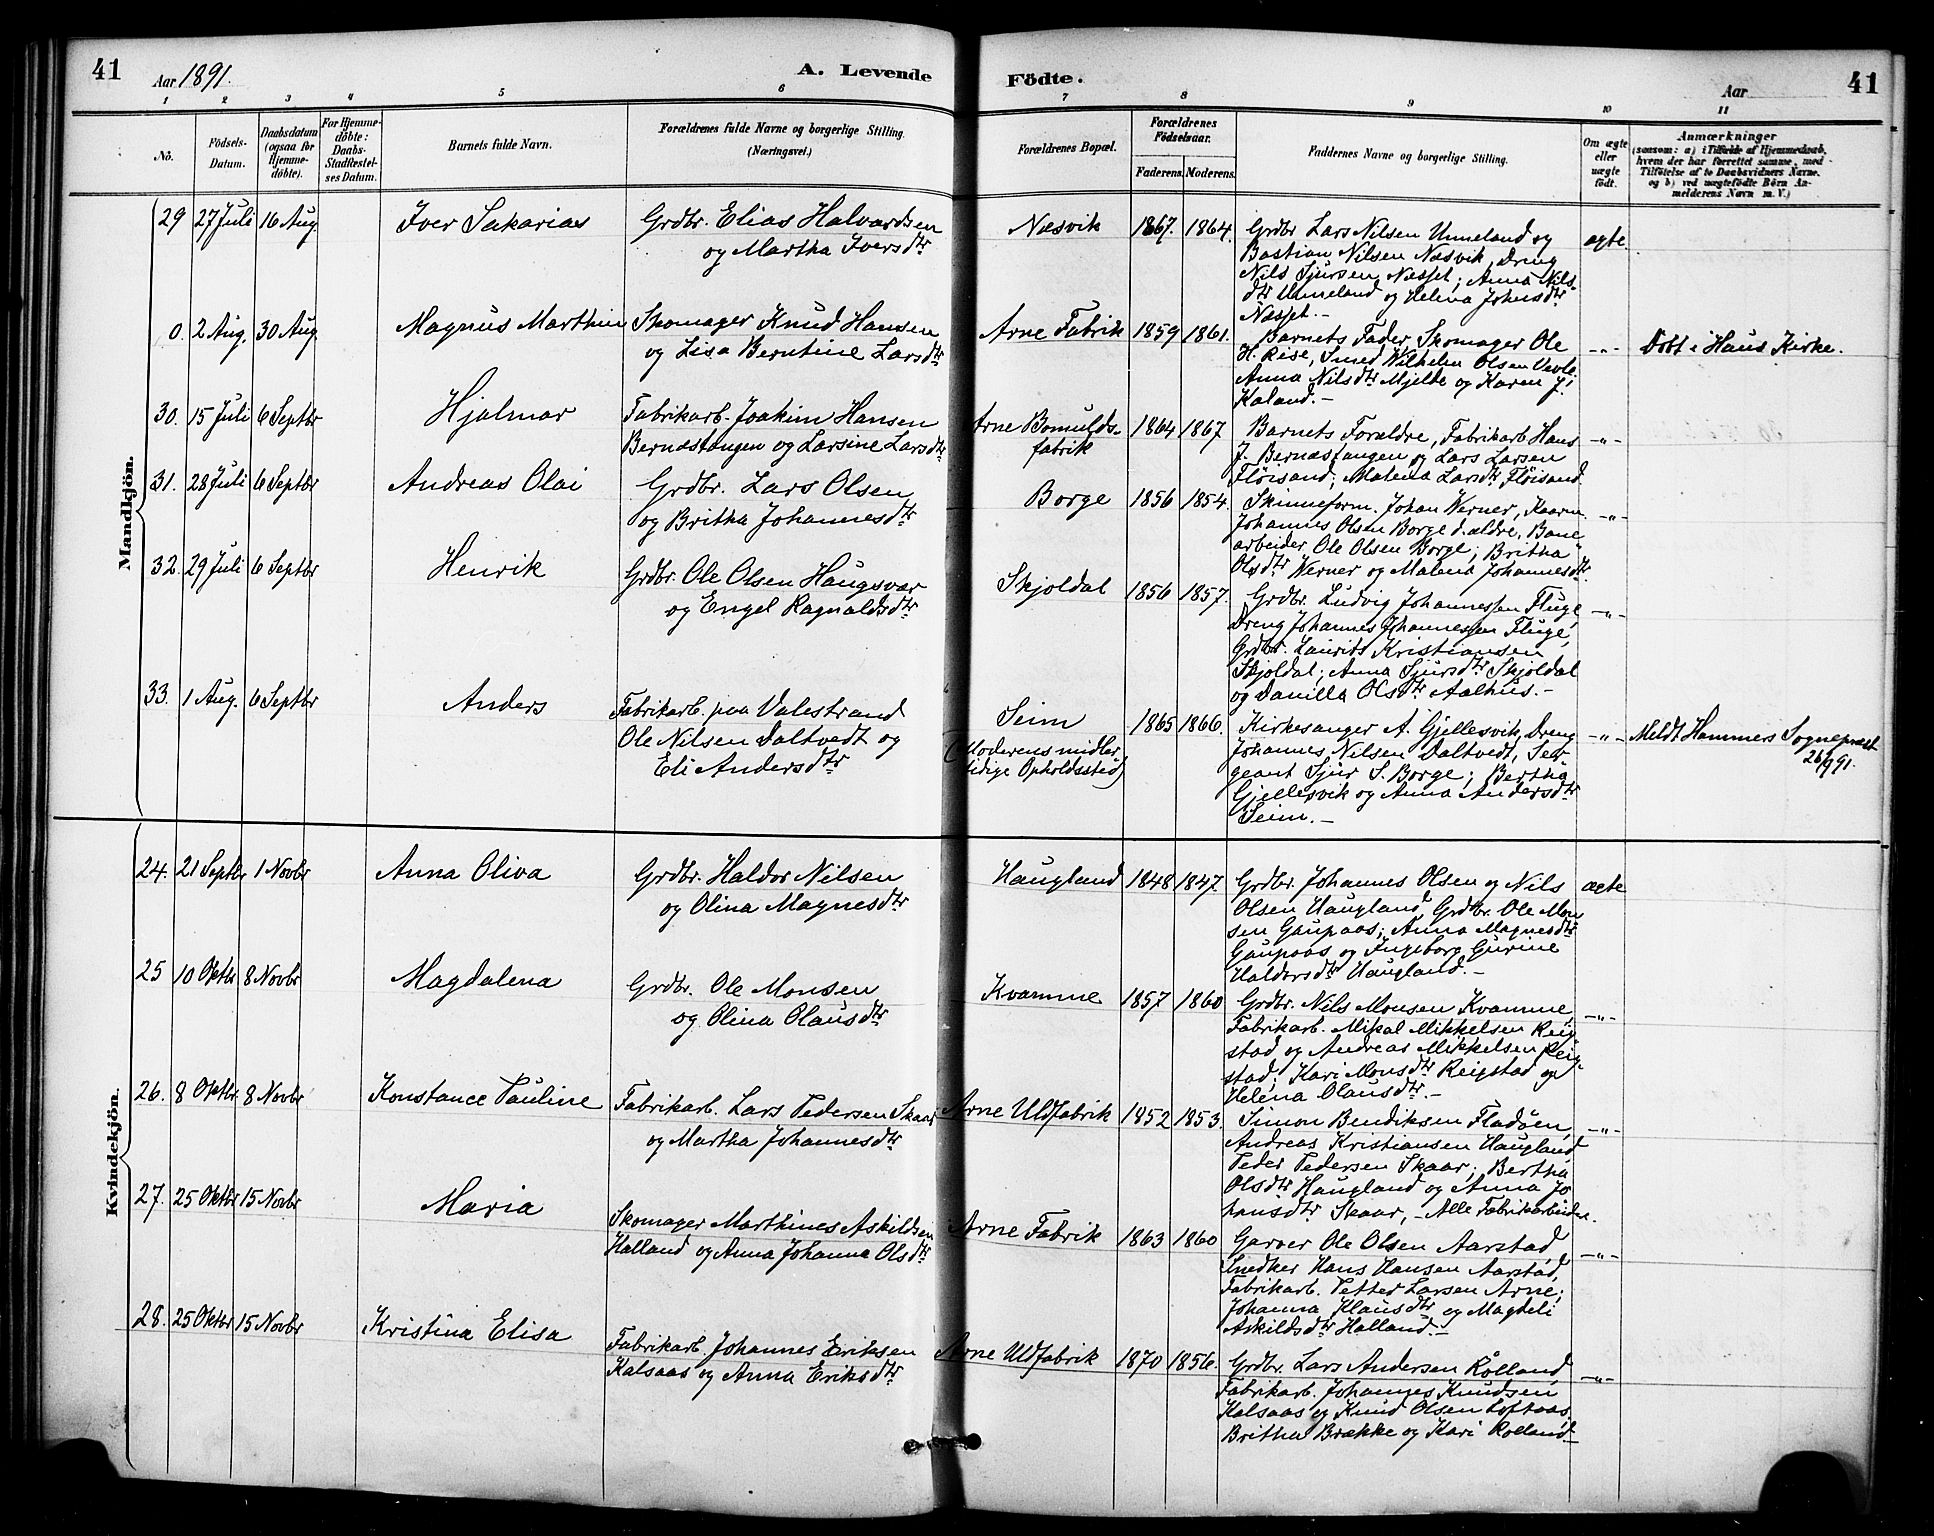 41
Aar 1891.
A. Levende
Födte.
Aar
41
1 2 3 4 5 6 7 8 9 10 11
No.
Födsels-
Datum.
Daabsdatum
(ogsaa for
Hjemme-
döbte).
For Hjemme-
döbte:
Daabs-
Stadfestel-
ses Datum.
Barnets fulde Navn.
Forældrenes fulde Navne og borgerlige Stilling.
(Næringsvei.)
Forældrenes Bopæl.
Forældrenes
Födselsaar.
Faderens. Moderens.
Faddernes Navne og borgerlige Stilling.
Om ægte
eller
uægte
födt.
Anmærkninger
(saasom: a) i Tilfælde af Hjemmedaab,
hvem der har forrettet samme, med
Tilföielse af to Daabsvidners Navne,
og b) ved uægtefödte Börn An-
melderens Navn m. V.)
Mandkjön.
29 27 Juli 16 Aug Iver Sakarias Grdbr. Elias Halvardsen
og Martha Iversdtr
Næsvik 1867. 1864. Grdbr Lars Nilsen Unneland og
Bastian Nilsen Næsvik, Dreng
Nils Sjursen Næsset; Anna Nils-
dtr Unneland og Helena Johnsdtr
Næsset.-
ægte.
0. 2 Aug. 30 Aug. Magnus Marthin Skomager Knud Hansen
og Lisa Berntine Larsdtr
Arne Fabrik 1859 1861. Barnets Fader, Skomager Ole
H. Rise, Smed Wilhelm Olsen Vevle
Anna Nilsdtr Mjelde og Karen J.
Kaland.-
-"- Döbt i Haus Kirke.
30. 15 Juli 6 Septbr Hjalmar Fabrikarb. Joakim Hansen
Bernæstangen og Larsine Larsdtr
Arne Bomulds-
fabrik
1864 1867 Barnets Forældre, Fabrikarb Hans
J. Bernæstangen og Lars Larsen
Flöisand; Malena Larsdtr Flöisand.
-"-
31. 28 Juli 6 Septbr Andreas Olai Grdbr. Lars Olsen
og Britha Johannesdtr
Borge 1856 1854. Skinneform. Johan Werner, Kaarm.
Johannes Olsen Borge d. ældre, Bane
arbeider Ole Olsen Borge; Britha
Olsdtr Werner og Malena Johannesdtr.
-"-
32. 29 Juli 6 Septbr Henrik Grdbr. Ole Olsen Haugsvær
og Engel Ragnaldsdtr
Skjoldal 1856 1857. Grdbr. Ludvig Johannessen Fluge,
Dreng Johannes Johannessen Fluge,
Grdbr. Laurits Kristiansen
Skjoldal; Anna Sjursdtr Skjoldal
og Danilla Olsdtr Aalhus.-
-"-
33. 1 Aug. 6 Septbr Anders Fabrikarb. paa Valestrand
Ole Nilsen Daltvedt og
Eli Andersdtr
Seim
(Moderens midler
tidige Opholdssted)
1865 1866. Kirkesanger A. Gjellesvik, Dreng
Johannes Nilsen Daltvedt, Ser-
geant Sjur S. Borge; Bertha
Gjellesvik og Anna Andersdtr
Seim.-
-"- Meldt Hammers Sogneprest
26/9 91.
Kvindekjön.
24. 21 Septbr 1 Novbr Anna Oliva Grdbr. Haldor Nilsen
og Olina Magnesdtr
Haugland 1848 1847 Grdbr. Johannes Olsen og Nils
Olsen Haugland, Grdbr. Ole Mon
sen Gaupaas; Anna Magnesdtr
Gaupaas og Ingeborg Gurine
Haldorsdtr Haugland.-
ægte
25 10 Oktbr 8 Novbr Magdalena Grdbr. Ole Monsen
og Olina Olausdtr
Kvamme 1857 1860 Grdbr. Nils Monsen Kvamme,
Fabrikarb. Mikal Mikkelsen Reig
stad og Andreas Mikkelsen Reig-
stad; Kari Monsdtr Reigstad og
Helena Olausdtr.-
-"-
26. 8 Oktbr. 8 Novbr Konstance Pauline Fabrikarb. Lars Pedersen Skaar
og Martha Johannesdtr
Arne Uldfabrik 1852 1853. Simon Bendiksen Fladöen,
Andreas Kristiansen Haugland
Peder Pedersen Skaar; Bertha
Olsdtr Haugland og Anna Jo
hansdtr Skaar, - Alle Fabrikarbeidere.
-"-
27. 25 Oktbr 15 Novbr Maria Skomager Marthines Askildsen
Halland og Anna Johanna Olsdtr
Arne Fabrik 1863 1860 Garver Ole Olsen Aarstad,
Snedker Hans Hansen Aarstad,
Fabrikarb. Petter Larsen Arne;
Johanna Klausdtr og Magdeli
Askildsdtr Halland.-
-"-
28. 25 Oktbr 15 Novbr Kristina Elisa Fabrikarb. Johannes Eriksen
Kalsaas og Anna Eriksdtr
Arne Uldfabrik 1870 1856. Grdbr. Lars Andersen Rolland,
Fabrikarb. Johannes Knudsen
Kalsaas og Knud Olsen Loftaas,
Britha Brække og Kari Rolland-
-"-